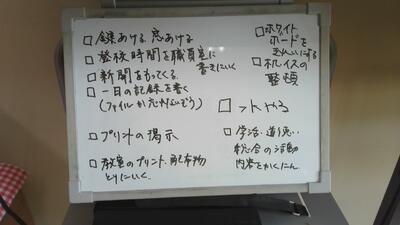 □鍵あける、窓あける
□登校時間を職員室に
書きにいく
□新聞をもってくる
□一日の記録を書く
(ファイルが忘れないぞう)
□プリントの掲示
□教室のプリント、配布物
とりにいく。
□ホワイト
ボードを
きれいにする
□机イスの
整頓
□ットやる
□学活・道とく・
総合の活動
内容をかくにん。